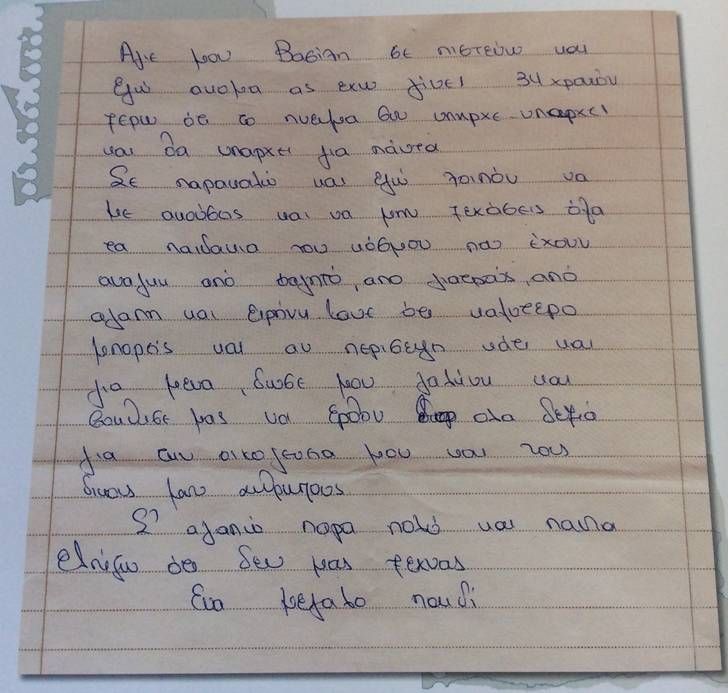 Αγιε μου Βασίλη σε πιστεύω και
Εγώ ακομα ας εχω γίνει 34 χρονών
ξερω ότι το πνευμα σου υπηρχε υπαρχει
και θα υπαρχει για πάντα
Σε παρακαλώ και εγώ λοιπόν να
με ακούσεις και να μην ξεχάσεις όλα
τα παιδακια του κόσμου που έχουν
αναγκη από φαγητό, απο γιατρούς, από
αγαπη και ειρήνη κανε ότι καλυτερο
μπορείς και αν περισεψη κάτι και
για μενα, δωσε μου γαλήνη και
βοηθισε μας να έρθουν ολα δεξιά
για την οικογενεια μου και τους
δικους μου ανθρωπους
Σ' αγαπώ παρα πολύ και παντα
ελπίζω ότι δεν μας ξεχνας
Ενα μεγαλο παιδί